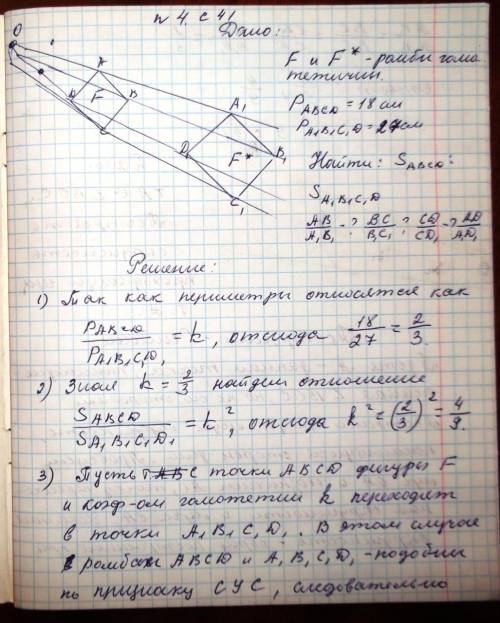 n 4. с 41
Дано:
O
A
B
D
F
C
A₁
B₁
D₁
F*
C₁
F и F* - ромбы гомо
тетичны.
P_ABCD = 18 см
P_A₁B₁C₁D₁ = 27 см
Найти: S_ABCD :
S_A₁B₁C₁D
AB/A₁B₁ - ? BC/B₁C₁ ? CD/CD₁ - ? AD/A₁D₁
Решение:
1) Так как периметры относятся как
P_ABCD/P_A₁B₁C₁D₁ = k, отсюда 18/27 = 2/3
2) Зная k = 2/3 найдем отношение
S_ABCD/S_A₁B₁C₁D₁ = k², отсюда k² = (2/3)² = 4/9.
3) Пусть точки ABCD фигуры F
и коэф-ом гомотетии k переходят
в точки A₁B₁C₁D₁. В этом случае
ромбы ABCD и A₁B₁C₁D₁ - подобны
по признаку СУС, следовательно